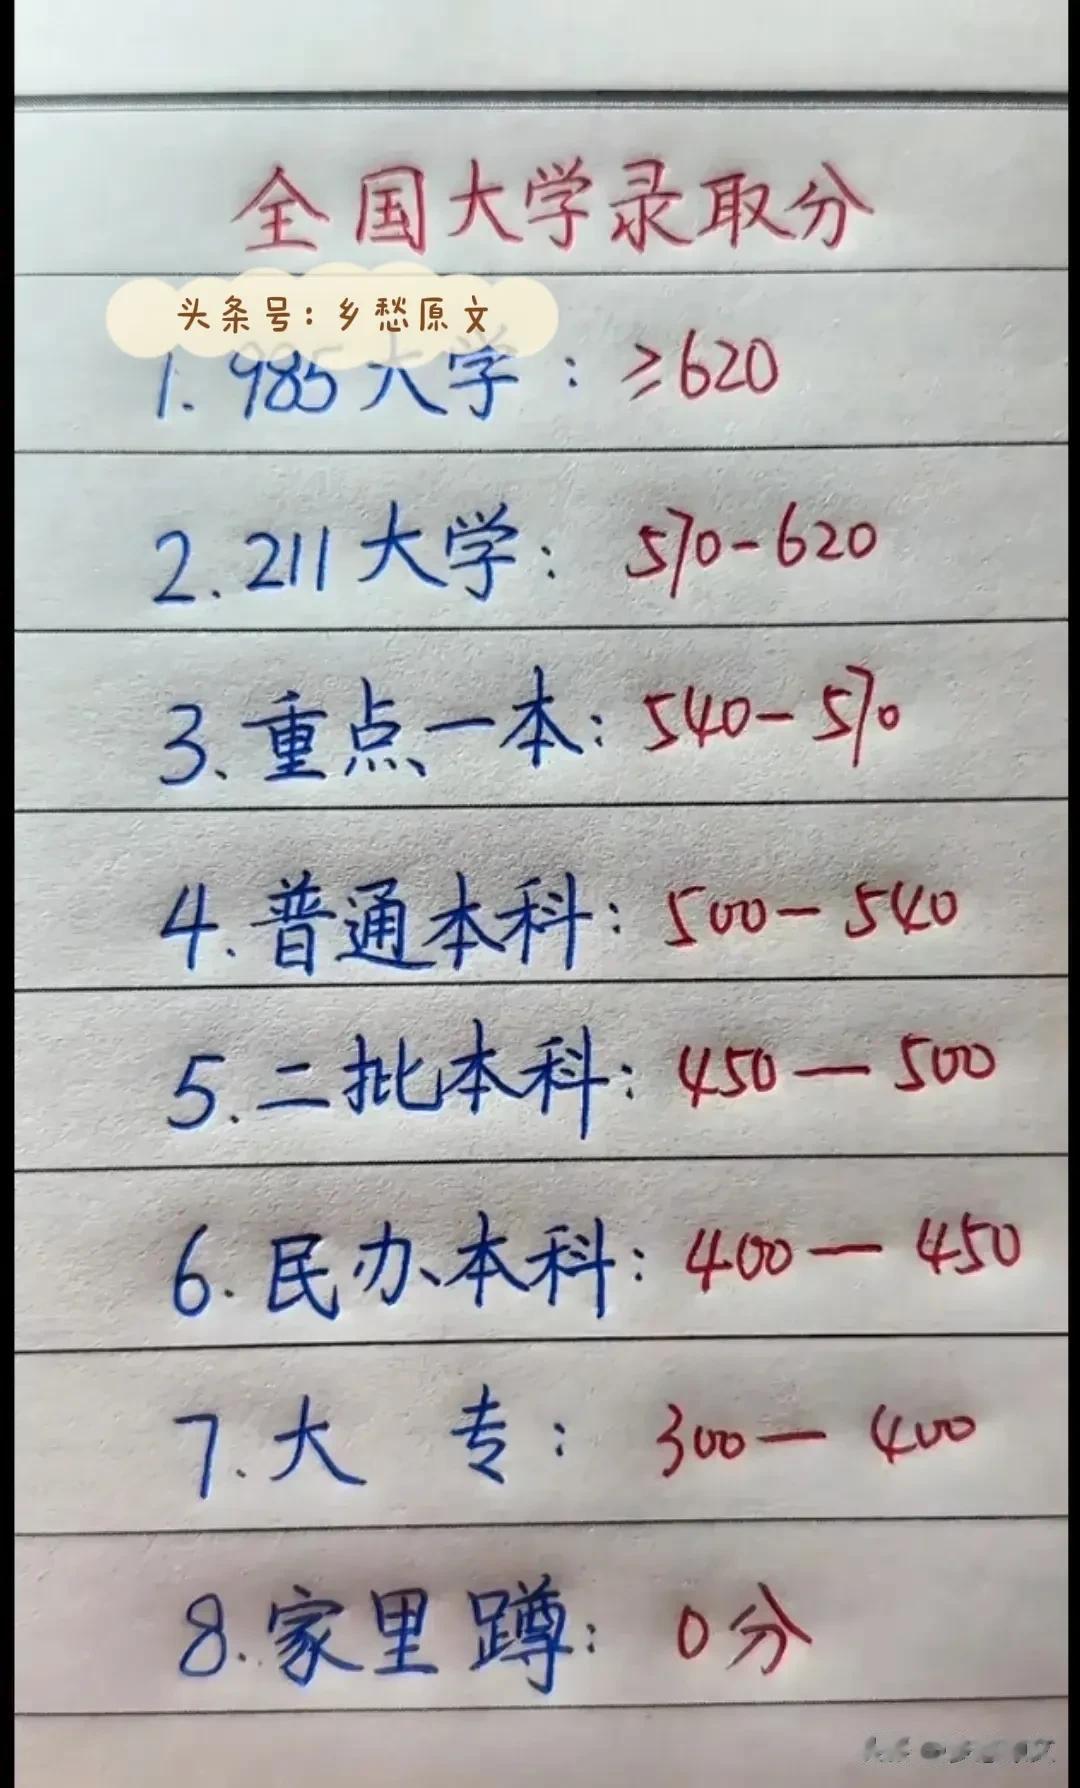 全国大学录取分
头条号:乡愁原文
1. 985大学:≥620
2. 211大学: 570-620
3、重点一本:540-570
4.普通本科:500-540
5.二批本科:450-500
6.民办本科:400-450
7.大 专: 300-400
8.家里蹲: 0分